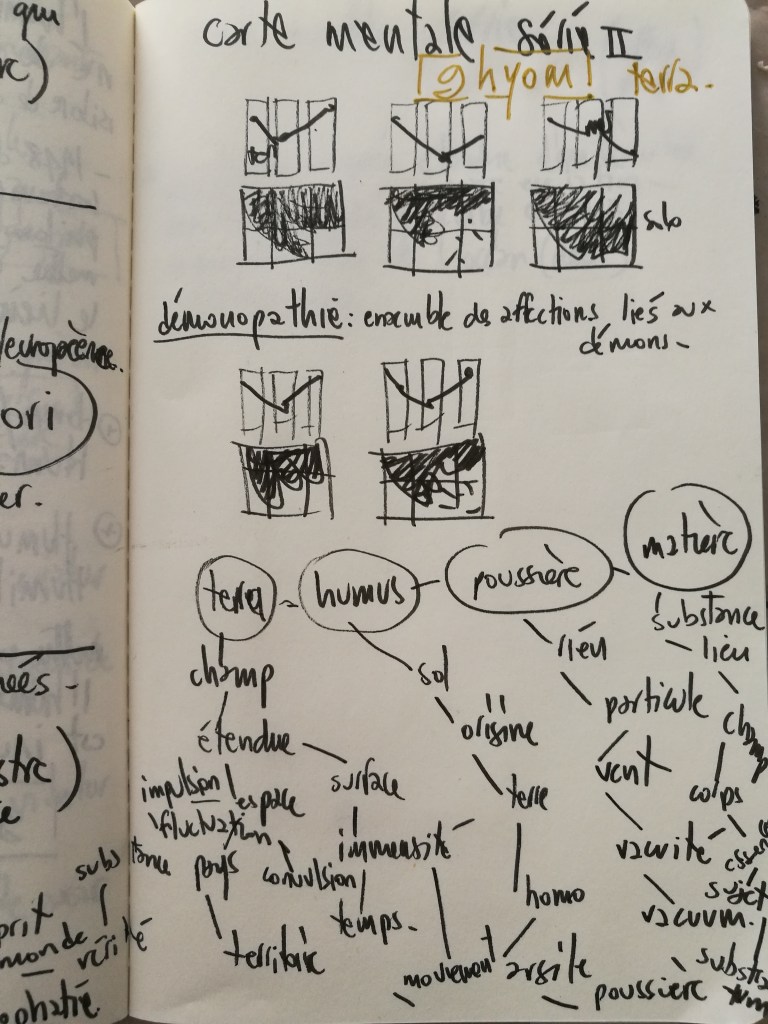 qui
carte mentale série II
ghyom! terra.
démonopathie: ensemble des affections liés aux
démons-
ori
er.
terra - humus - poussière - matière
substance
champ sol rien lieu
particule champ
étendue origine
impulsion espace surface terre vent corps
fluctuation
substance pays convulsion immensité vacuité
sujet
homo vacuum.
temps.
territoire
mouvement argile poussière
monde vérité